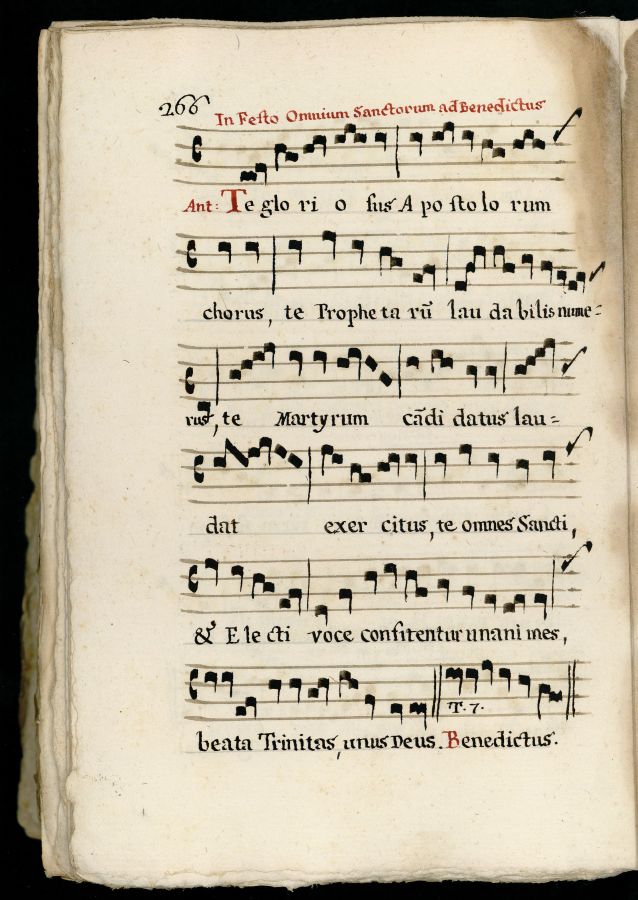 266
In Festo Omnium Sanctorum ad Benedictus
Ant: Te glo ri o sus A po sto lo rum
chorus, te Prophe ta rū lau da bilis nume=
rus, te Martyrum cādi datus lau=
dat exer citus, te omnes Sancti,
& E le cti voce confitentur unani mes,
T. 7.
beata Trinitas, unus Deus. Benedictus.